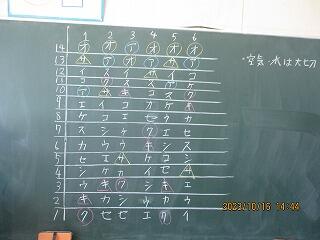 1 2 3 4 5 6
14 オ オ ア オ オ オ
13 サ ア オ サ ア ア
12 イ ス イ サ イ コ
11
10
9 エ イ コ カ ケ キ
8 ケ コ エ セ ウ カ
7 ス シ ケ ク エ ケ
6 カ ウ ウ キ シ ス
5 セ エ サ コ セ
4 シ ケ カ イ サ エ
3 ウ キ ク シ キ エ
2 キ カ シ ウ カ ウ
1 ク セ セ エ ク イ
・空気・水は大切
2023/10/16 14:44